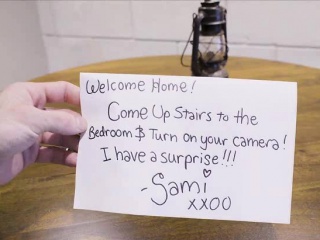 Welcome Home!
Come Up Stairs to the
Bedroom & Turn on your camera!
I have a surprise!!!
-Sami
xxoo